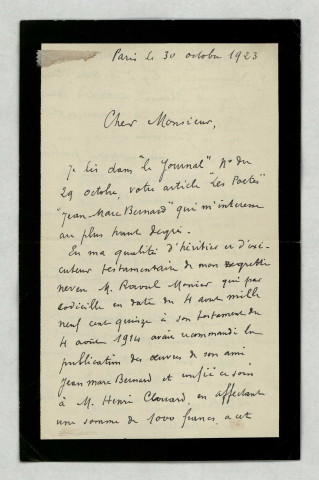 Paris le 30 octobre 1923
Cher Monsieur,
Je lis dans "le Journal" N° du
29 octobre, votre article "Les Poètes"
"Jean-Marc Bernard" qui m'intéresse
au plus haut degré.
En ma qualité d'héritier et d'exé-
cuteur testamentaire de mon regretté
neveu M. Raoul Monier qui par
codicille en date du 4 aout mille
neuf cent quinze à son testament du
4 août 1914 avait recommandé la
publication des œuvres de son ami
Jean Marc Bernard et confié ce soin
à M. Henri Clouard, en affectant
une somme de 1000 francs, a cet